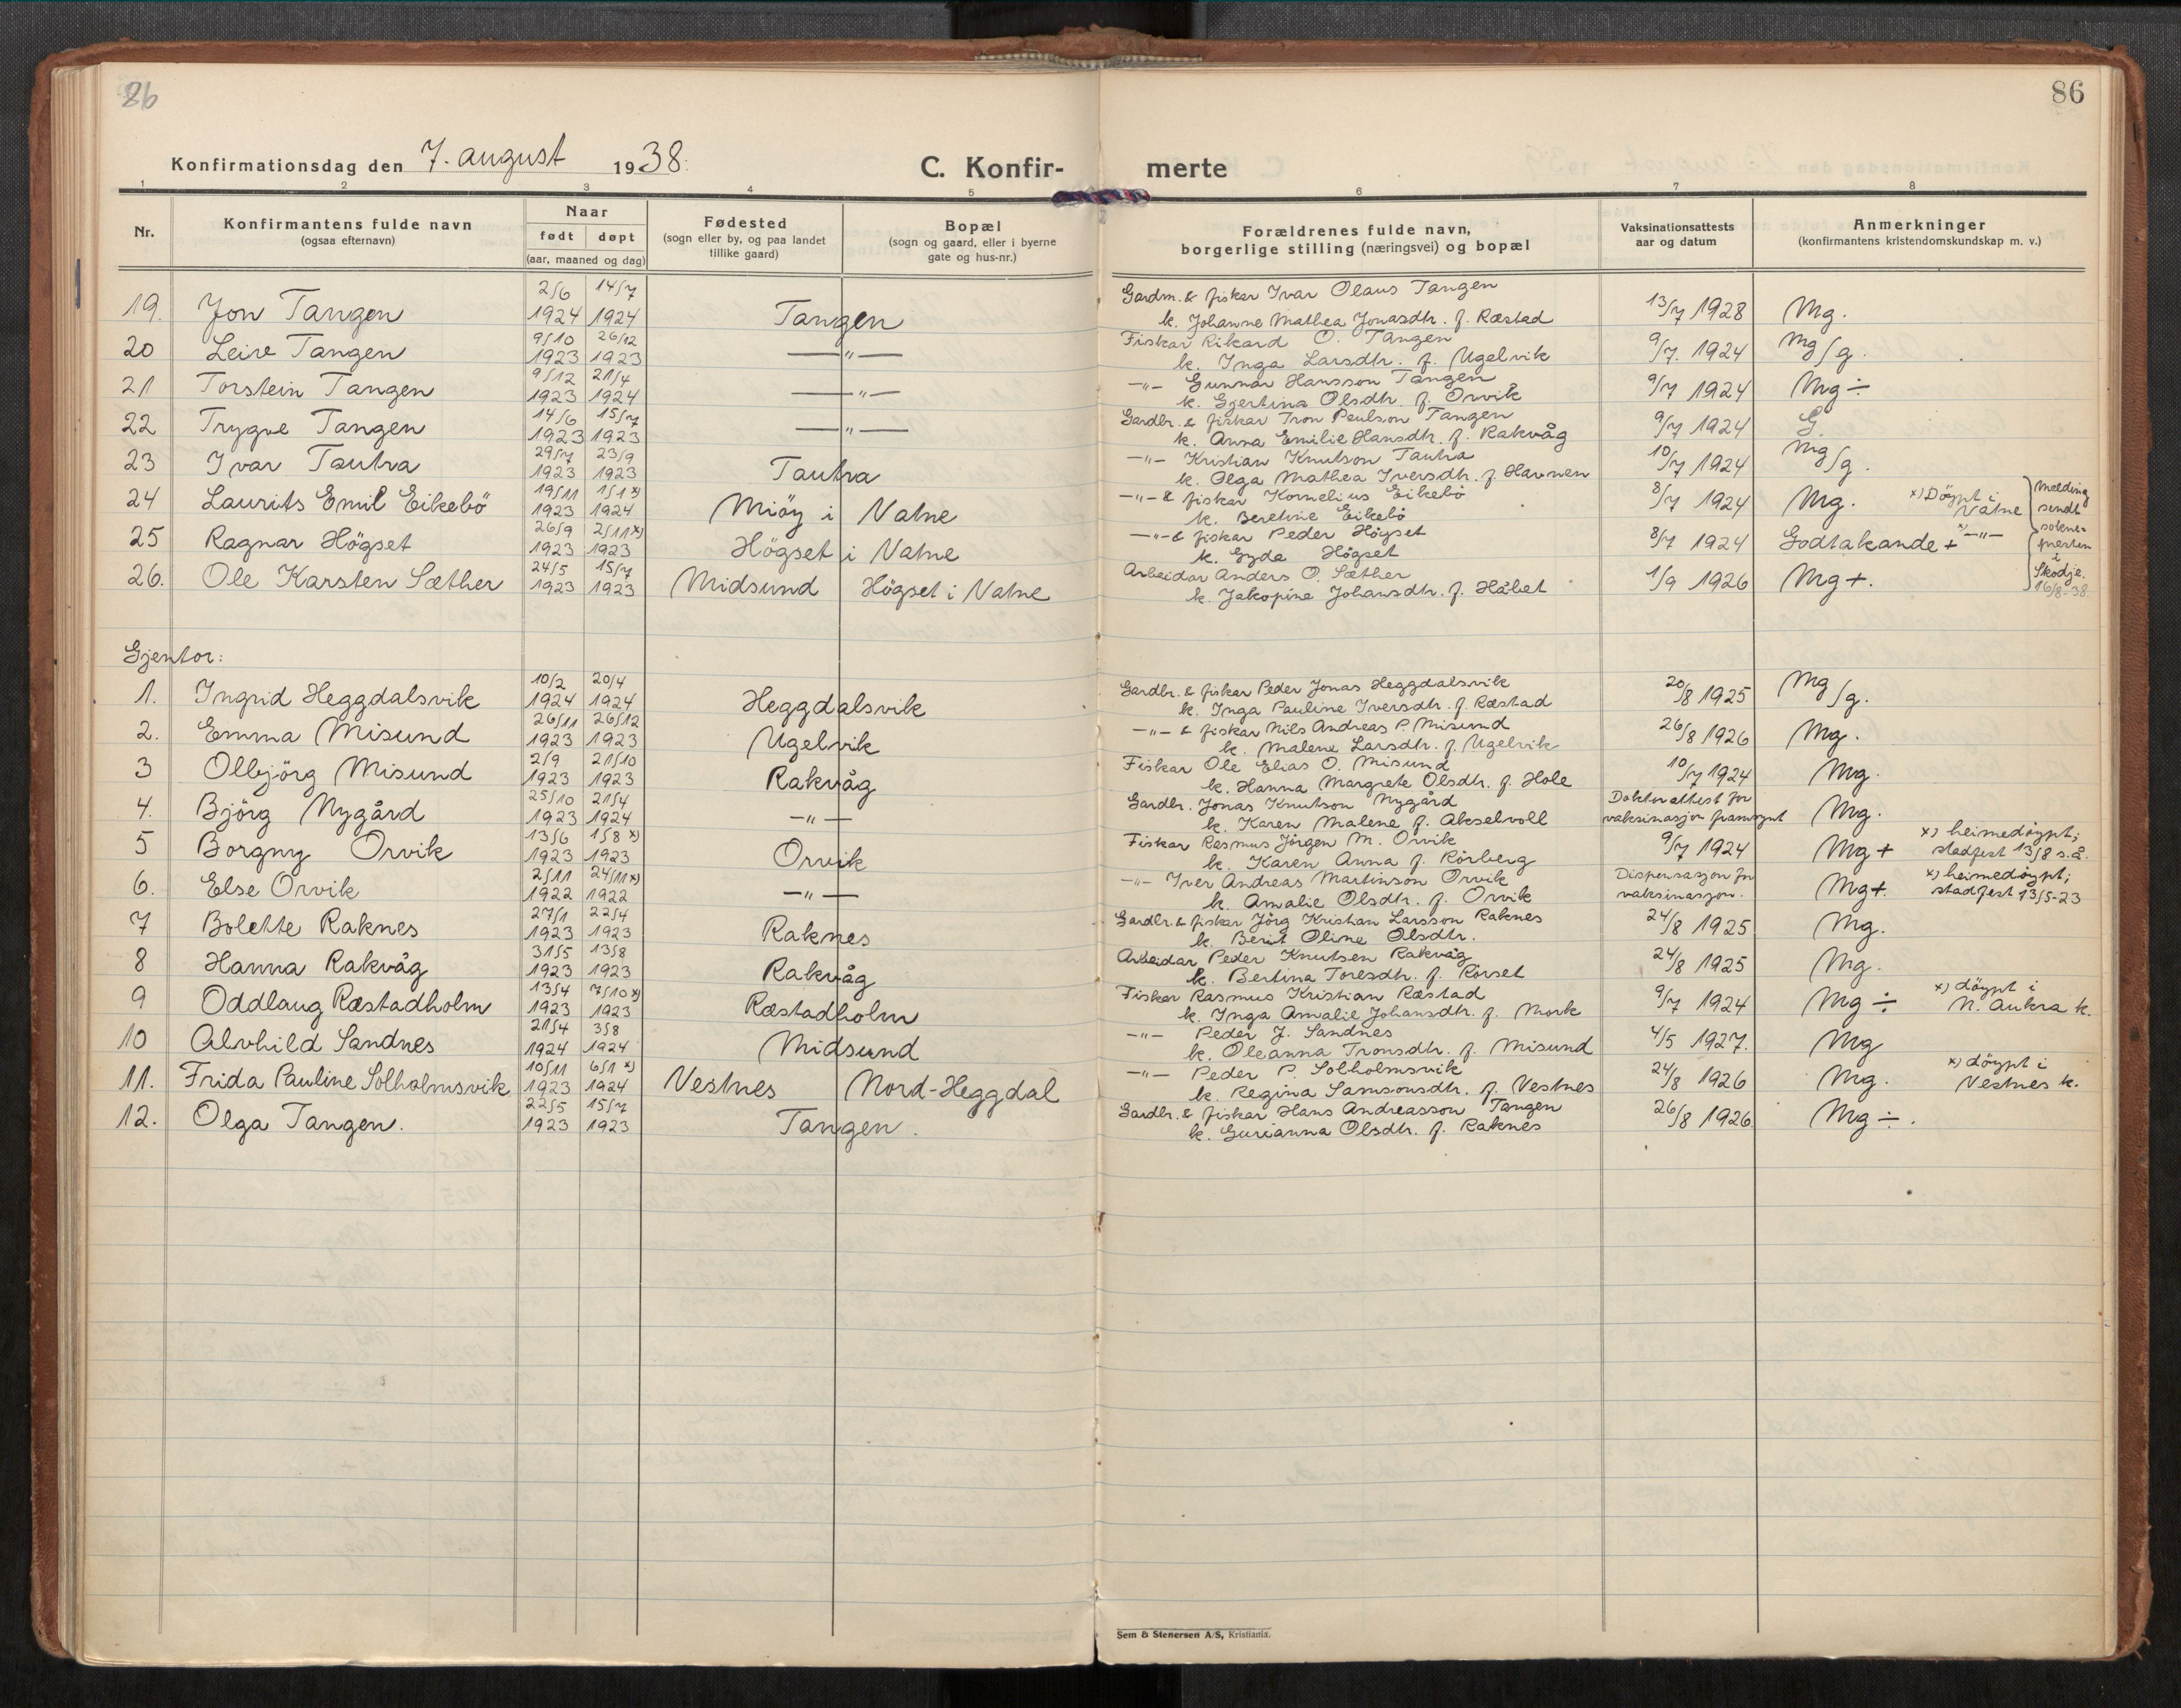 86
86
Konfirmationsdag den 7. august 1938.
C. Konfir- merte
1 2 3 4 5 6 7 8
Nr.
Konfirmantens fulde navn
(ogsaa efternavn)
Naar
født døpt
(aar, maaned og dag)
Fødested
(sogn eller by, og paa landet
tillike gaard)
Bopæl
(sogn og gaard, eller i byerne
gate og hus-nr.)
Forældrenes fulde navn,
borgerlige stilling (næringsvei) og bopæl
Vaksinationsattests
aar og datum
Anmerkninger
(konfirmantens kristendomskundskap m. v.)
2/6 14/7 Gardm. & fiskar Ivar Olaus Tangen
19. Jon Tangen 1924 1924 Tangen k. Johanne Mathea Jonasdtr. f. Ræstad 13/7 1928 Mg.
9/10 26/12 Fiskar Rikard O. Tangen
20 Leiv Tangen 1923 1923 —"— k. Inga Larsdtr. f. Ugelvik 9/7. 1924 Mg/g.
9/12 21/4 -"- Gunnar Hansson Tangen
21 Torstein Tangen 1923 1924 —"— k. Gjertina Olsdtr. f. Orvik 9/7 1924 Mg ÷
14/6 15/7 Gardbr. & fiskar Tron Paulson Tangen
22 Trygve Tangen 1923 1923 —"— k. Anna Emilie Hansdtr. f. Rakvåg 9/7 1924 G.
29/7 23/9 -"- Kristian Knutson Tautra
23 Ivar Tautra 1923 1923 Tautra k. Olga Mathea Iversdtr. f. Havnen 10/7 1924 Mg/g.
19/11 1/1 x) -"- & fiskar Kornelius Eikebö
24 Laurits Emil Eikebö 1923 1924 Miöy i Vatne k. Beretine Eikebö 8/7 1924 Mg. x) Döypt i Vatne
26/9 2/11 x) -"- & fiskar Peder Högset
25 Ragnar Högset 1923 1923 Högset i Vatne k. Gyda Högset 8/7 1924 Godtakande + x) -"-
24/5 15/7 Arbeidar Anders O. Sæther
26. Ole Karsten Sæther 1923 1923 Midsund Högset i Vatne k. Jakopine Johansdtr. f. Håbet 1/9 1926 Mg +.
Melding
sendt
sokne-
presten
i
Skodje.
16/8-38.
Gjentor:
10/2 20/4 Gardbr. & fiskar Peder Jonas Heggdalsvik
1. Ingrid Heggdalsvik 1924 1924 Heggdalsvik k. Inga Pauline Iversdtr. f. Ræstad 20/8 1925 Mg/g.
26/11 26/12 -"- & fiskar Nils Andreas P. Misund
2. Emma Misund 1923 1923 Ugelvik k. Malene Larsdtr. f. Ugelvik 26/8 1926 Mg.
2/9 21/10 Fiskar Ole Elias O. Misund
3 Olbjörg Misund 1923 1923 Rakvåg k. Hanna Margrete Olsdtr. f. Hole 10/7 1924 Mg.
25/10 21/4 Gardbr. Jonas Knutson Nygård Doktorattest for
4. Björg Nygård 1923 1924 -"- k. Karen Malene f. Akselvoll vaksinasjon framsynt Mg.
13/6 1/8 x) Fiskar Rasmus Jörgen M. Orvik x) heimedöypt;
5 Borgny Orvik 1923 1923 Orvik k. Karen Anna f. Rörberg 9/7 1924 Mg + stadfest 13/8 s.å.
2/11 24/11 x) -"- Iver Andreas Martinson Orvik Dispensasjon for x) heimedöypt;
6. Else Orvik 1922 1922 -"- k. Amalie Olsdtr. f. Orvik vaksinasjon. Mg +. stadfest 13/5-23
27/1 22/4 Gardbr. & fiskar Jörg Kristian Larsson Raknes
7 Bolette Raknes 1923 1923 Raknes k. Berit Oline Olsdtr. 24/8 1925 Mg.
31/5 13/8 Arbeidar Peder Knutsen Rakvåg
8 Hanna Rakvåg 1923 1923 Rakvåg k. Bertina Toresdtr. f. Rörset 24/8 1925 Mg.
13/4 7/10 x) Fiskar Rasmus Kristian Ræstad x) döypt i
9 Oddlaug Ræstadholm 1923 1923 Ræstadholm k. Inga Amalie Johansdtr. f. Mork 9/7 1924 Mg ÷ N. Aukra k.
21/4 3/8 -"- Peder J. Sandnes
10 Alvhild Sandnes 1924 1924 Midsund k. Oleanna Tronsdtr. f. Misund 4/5 1927. Mg
10/11 6/1 x) -"- Peder P. Solholmsvik x) döypt i
11. Frida Pauline Solholmsvik 1923 1924 Vestnes Nord-Heggdal k. Regina Samsonsdtr. f. Vestnes 24/8 1926 Mg. Vestnes k.
22/5 15/7 Gardbr. & fiskar Hans Andreasson Tangen
12. Olga Tangen. 1923 1923 Tangen. k. Gurianna Olsdtr. f. Raknes 26/8 1926. Mg ÷.
Sem & Stenersen A/S, Kristiania.